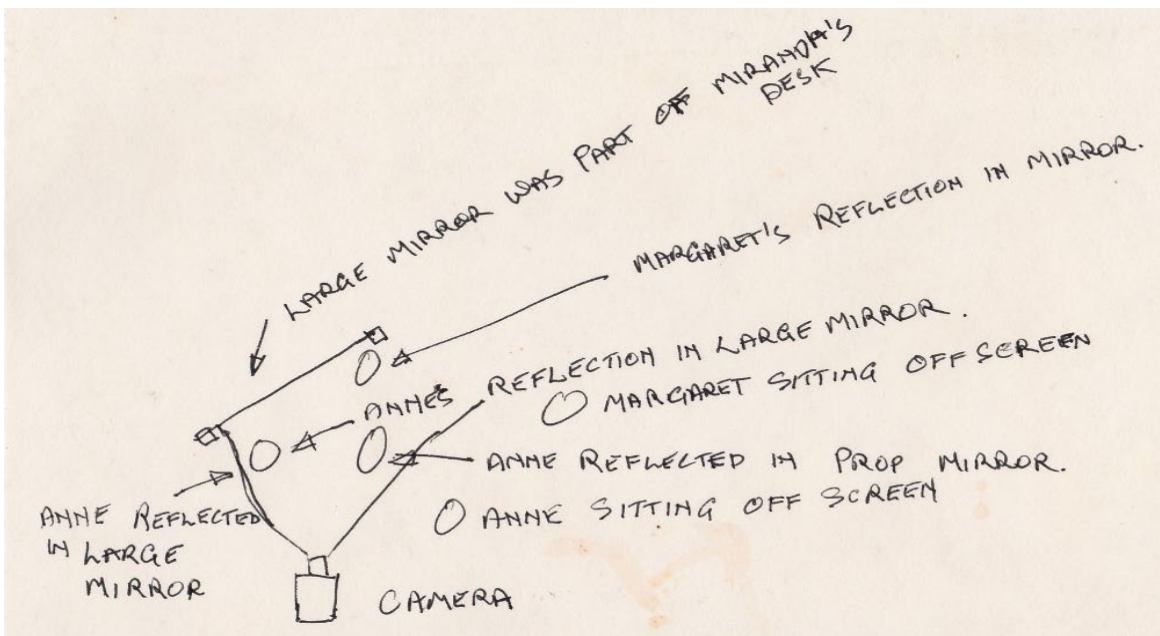 LARGE MIRROR WAS PART OFF MIRANDA'S
DESK
MARGARET'S REFLECTION IN MIRROR.
ANNE'S REFLECTION IN LARGE MIRROR.
MARGARET SITTING OFF SCREEN
ANNE REFLECTED IN PROP MIRROR.
ANNE SITTING OFF SCREEN
ANNE REFLECTED
IN LARGE
MIRROR
CAMERA